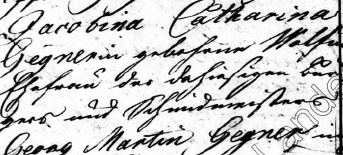 Jacobina Catharina
Gegnerin gebohrne Wolfin
Ehefrau des dahiesigen Bür
gers und Schmidmeisters
Georg Martin Gegner